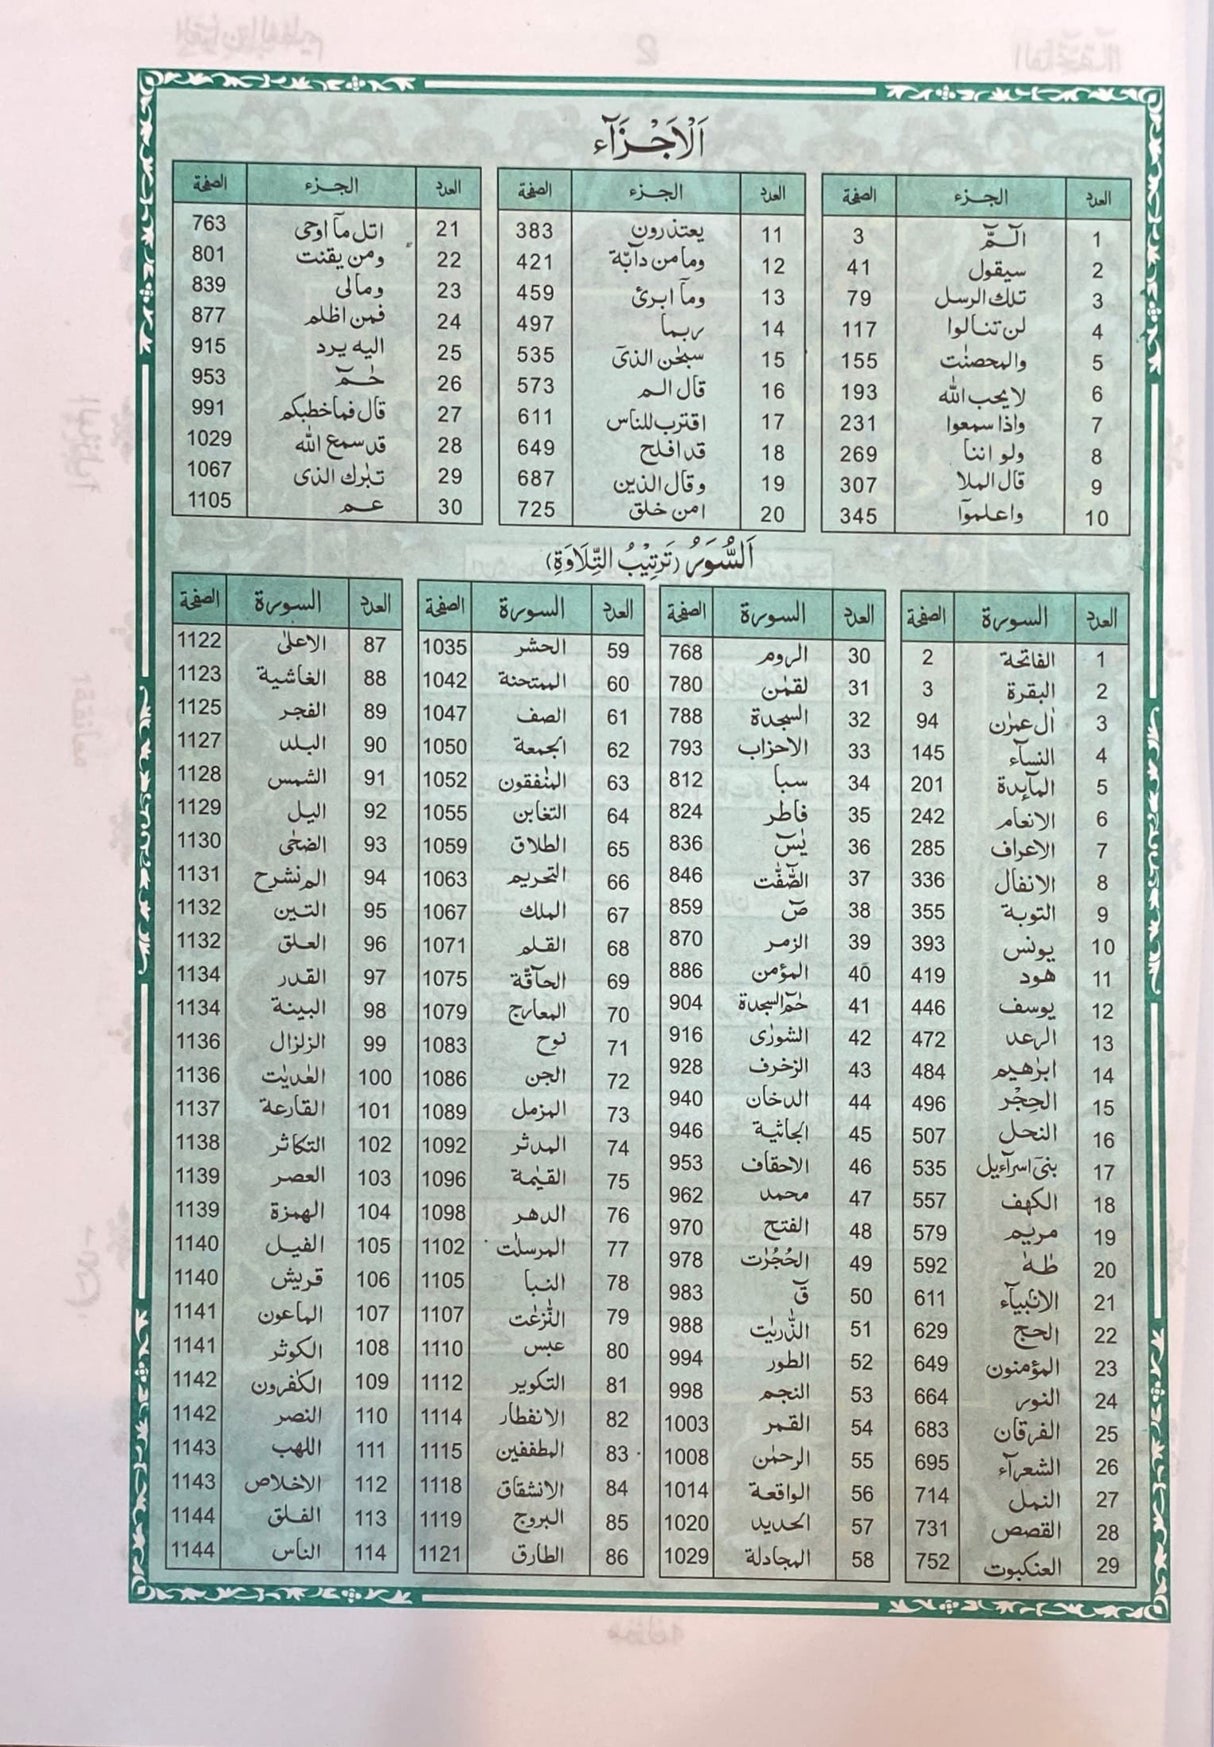 اَلْاَجْزَآء
العدد الجزء الصفحة
1 الٓمّٓ 3
2 سيقول 41
3 تلك الرسل 79
4 لن تنالوا 117
5 والمحصنٰت 155
6 لا يحب الله 193
7 واذا سمعوا 231
8 ولو اننا 269
9 قال الملا 307
10 واعلموٓا 345
العدد الجزء الصفحة
11 يعتذرون 383
12 وما من دآبّة 421
13 ومآ ابرئ 459
14 ربما 497
15 سبحٰن الذیٓ 535
16 قال الم 573
17 اقترب للناس 611
18 قد افلح 649
19 وقال الذين 687
20 امن خلق 725
العدد الجزء الصفحة
21 اتل مآ اوحی 763
22 ومن يقنت 801
23 ومالی 839
24 فمن اظلم 877
25 اليه يرد 915
26 حٰمٓ 953
27 قال فما خطبكم 991
28 قد سمع الله 1029
29 تبٰرك الذی 1067
30 عم 1105
اَلسُّوَرُ (تَرتِيْبُ التِّلَاوَةِ)
العدد السورة الصفحة
1 الفاتحة 2
2 البقرة 3
3 اٰل عمرٰن 94
4 النسآء 145
5 المآىِٕدة 201
6 الانعام 242
7 الاعراف 285
8 الانفال 336
9 التوبة 355
10 يونس 393
11 هود 419
12 يوسف 446
13 الرعد 472
14 ابرٰهيم 484
15 الحِجْر 496
16 النحل 507
17 بنیٓ اسرآءيل 535
18 الكهف 557
19 مريم 579
20 طٰهٰ 592
21 الانبيآء 611
22 الحج 629
23 المؤمنون 649
24 النور 664
25 الفرقان 683
26 الشعرآء 695
27 النمل 714
28 القصص 731
29 العنكبوت 752
العدد السورة الصفحة
30 الروم 768
31 لقمٰن 780
32 السجدة 788
33 الاحزاب 793
34 سبا 812
35 فاطر 824
36 يٰسٓ 836
37 الصّٰٓفّٰت 846
38 صٓ 859
39 الزمر 870
40 المؤمن 886
41 حٰمٓ السجدة 904
42 الشورٰی 916
43 الزخرف 928
44 الدخان 940
45 الجاثية 946
46 الاحقاف 953
47 محمد 962
48 الفتح 970
49 الحُجُرٰت 978
50 قٓ 983
51 الذّٰريٰت 988
52 الطور 994
53 النجم 998
54 القمر 1003
55 الرحمٰن 1008
56 الواقعة 1014
57 الحديد 1020
58 المجادلة 1029
العدد السورة الصفحة
59 الحشر 1035
60 الممتحنة 1042
61 الصف 1047
62 الجمعة 1050
63 المنٰفقون 1052
64 التغابن 1055
65 الطلاق 1059
66 التحريم 1063
67 الملك 1067
68 القلم 1071
69 الحآقّة 1075
70 المعارج 1079
71 نوح 1083
72 الجن 1086
73 المزمل 1089
74 المدثر 1092
75 القيٰمة 1096
76 الدهر 1098
77 المرسلٰت 1102
78 النبا 1105
79 النّٰزعٰت 1107
80 عبس 1110
81 التكوير 1112
82 الانفطار 1114
83 المطففين 1115
84 الانشقاق 1118
85 البروج 1119
86 الطارق 1121
العدد السورة الصفحة
87 الاعلٰی 1122
88 الغاشية 1123
89 الفجر 1125
90 البلد 1127
91 الشمس 1128
92 اليل 1129
93 الضحٰی 1130
94 الم نشرح 1131
95 التين 1132
96 العلق 1132
97 القدر 1134
98 البينة 1134
99 الزلزال 1136
100 العٰديٰت 1136
101 القارعة 1137
102 التكاثر 1138
103 العصر 1139
104 الهمزة 1139
105 الفيل 1140
106 قريش 1140
107 الماعون 1141
108 الكوثر 1141
109 الكٰفرون 1142
110 النصر 1142
111 اللهب 1143
112 الاخلاص 1143
113 الفلق 1144
114 الناس 1144